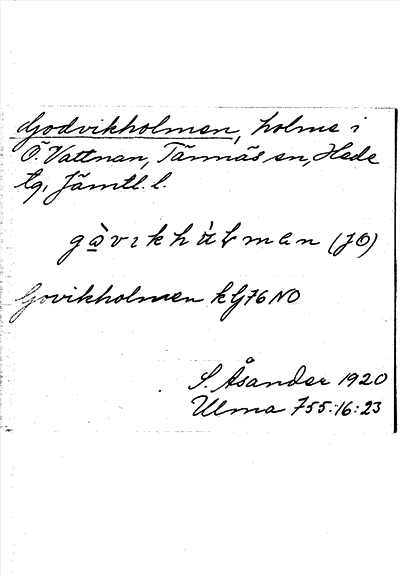 Godvikholmen, holme i
Ö. Vattnan, Tännäs sn, Hede
tg, Jämtl. l.
gòvıkhùłmen (JO)
Govikholmen kG76NO
S. Åsander 1920
Ulma 755:16:23